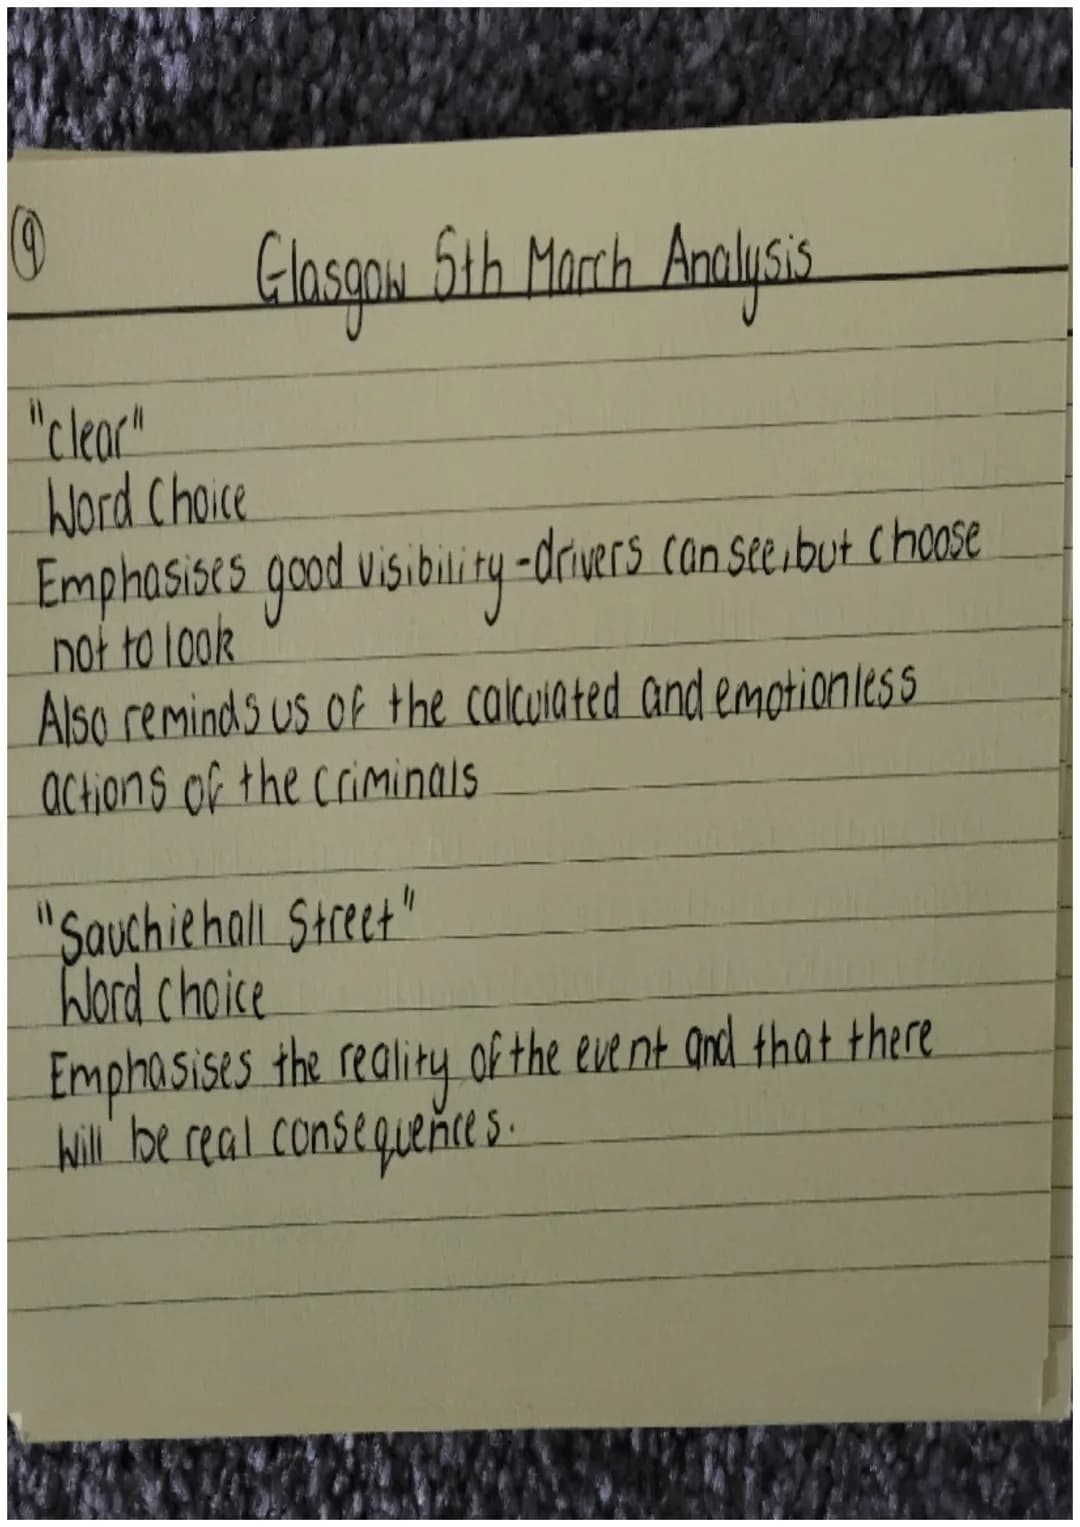 9
Glasgow 5th March Analysis
"clear"
Word Choice
Emphasises good visibility-drivers can see, but choose
not to look
Also reminds us of the calculated and emotionless
actions of the criminals
"Sauchiehall Street"
Word choice
Emphasises the reality of the event and that there
will be real consequences.